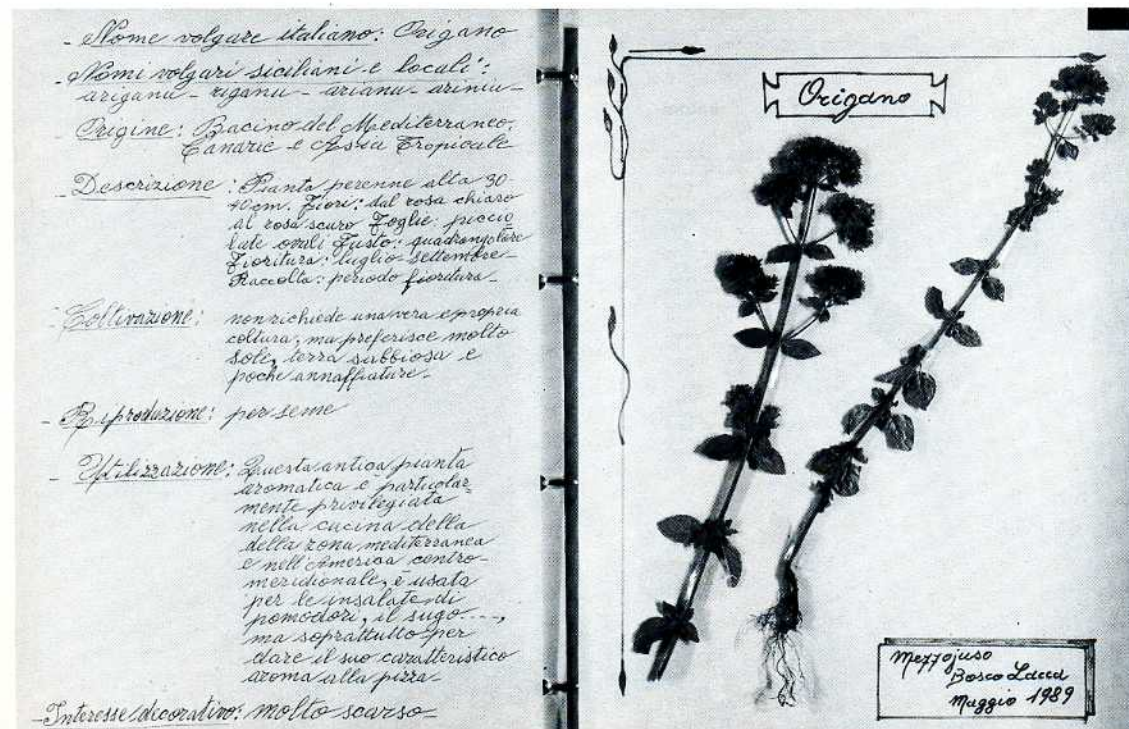 - Nome volgare italiano: Origano
- Nomi volgari siciliani e locali:
ariganu - riganu - arianu - ariniu -
- Origine: Bacino del Mediterraneo,
Canarie e Asia Tropicale
- Descrizione: Pianta perenne alta 30
40 cm. Fiori: dal rosa chiaro
al rosa scuro Foglie: piccio
late ovali Fusto: quadrangolare
Fioritura: luglio-settembre-
Raccolta: periodo fioritura-
- Coltivazione: non richiede una vera e propria
coltura, ma preferisce molto
sole, terra sabbiosa e
poche annaffiature-
- Riproduzione: per seme
- Utilizzazione: Questa antica pianta
aromatica e particolar=
mente privilegiata
nella cucina della
della zona mediterranea
e nell'America centro-
meridionale, è usata
per le insalate di
pomodori, il sugo....,
ma soprattutto per
dare il suo caratteristico
aroma alla pizza-
- Interesse decorativo: molto scarso-
Origano
Mezzojuso
Bosco Lacca
Maggio 1989